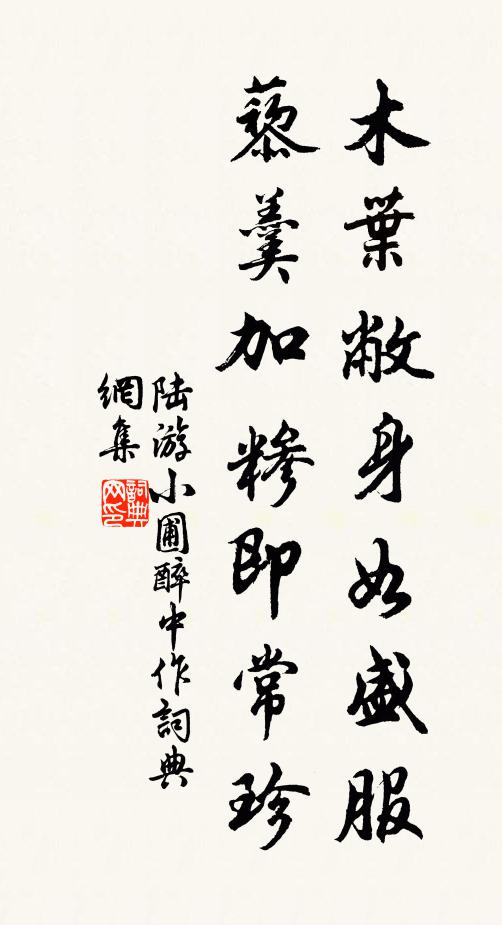 木葉敝身如盛服
藜羹加糝即常珍
陸游小圃醉中作詞典
網集
詞典網印